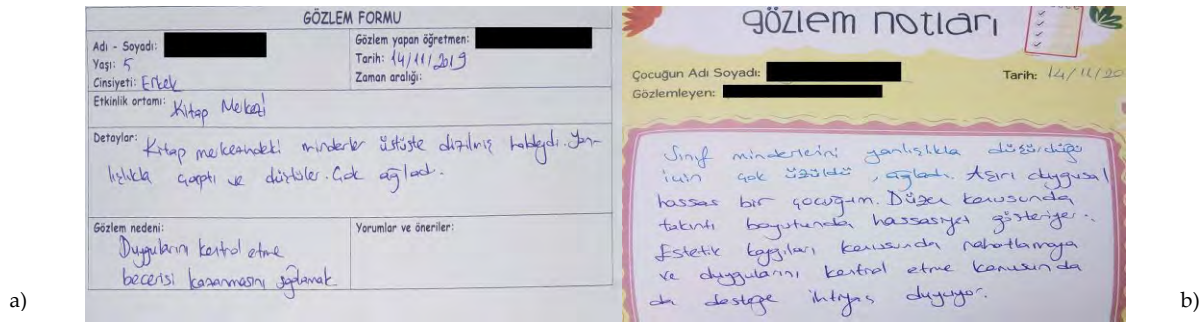 GÖZLEM FORMU
Adı - Soyadı:
Yaşı: 5
Cinsiyeti: Erkek
Gözlem yapan öğretmen:
Tarih: 14/11/2019
Zaman aralığı:
Etkinlik ortamı: Kitap Merkezi
Detaylar: Kitap merkezindeki minderler üstüste dizilmiş haldeydi. Yan-
lışlıkla çarptı ve düştüler. Çok ağladı.
Gözlem nedeni:
Duygularını kontrol etme
becerisi kazanmasını sağlamak
Yorumlar ve öneriler:
a)
gözlem notları
Çocuğun Adı Soyadı:
Tarih: 14/11/20
Gözlemleyen:
Sınıf minderlerini yanlışlıkla düşürdüğü
için çok üzüldü, ağladı. Aşırı duygusal
hassas bir çocuğum. Düzen konusunda
takıntı boyutunda hassasiyet gösteriyor.
Estetik kaygıları konusunda rahatlamaya
ve duygularını kontrol etme konusunda
da desteğe ihtiyaç duyuyor.
b)